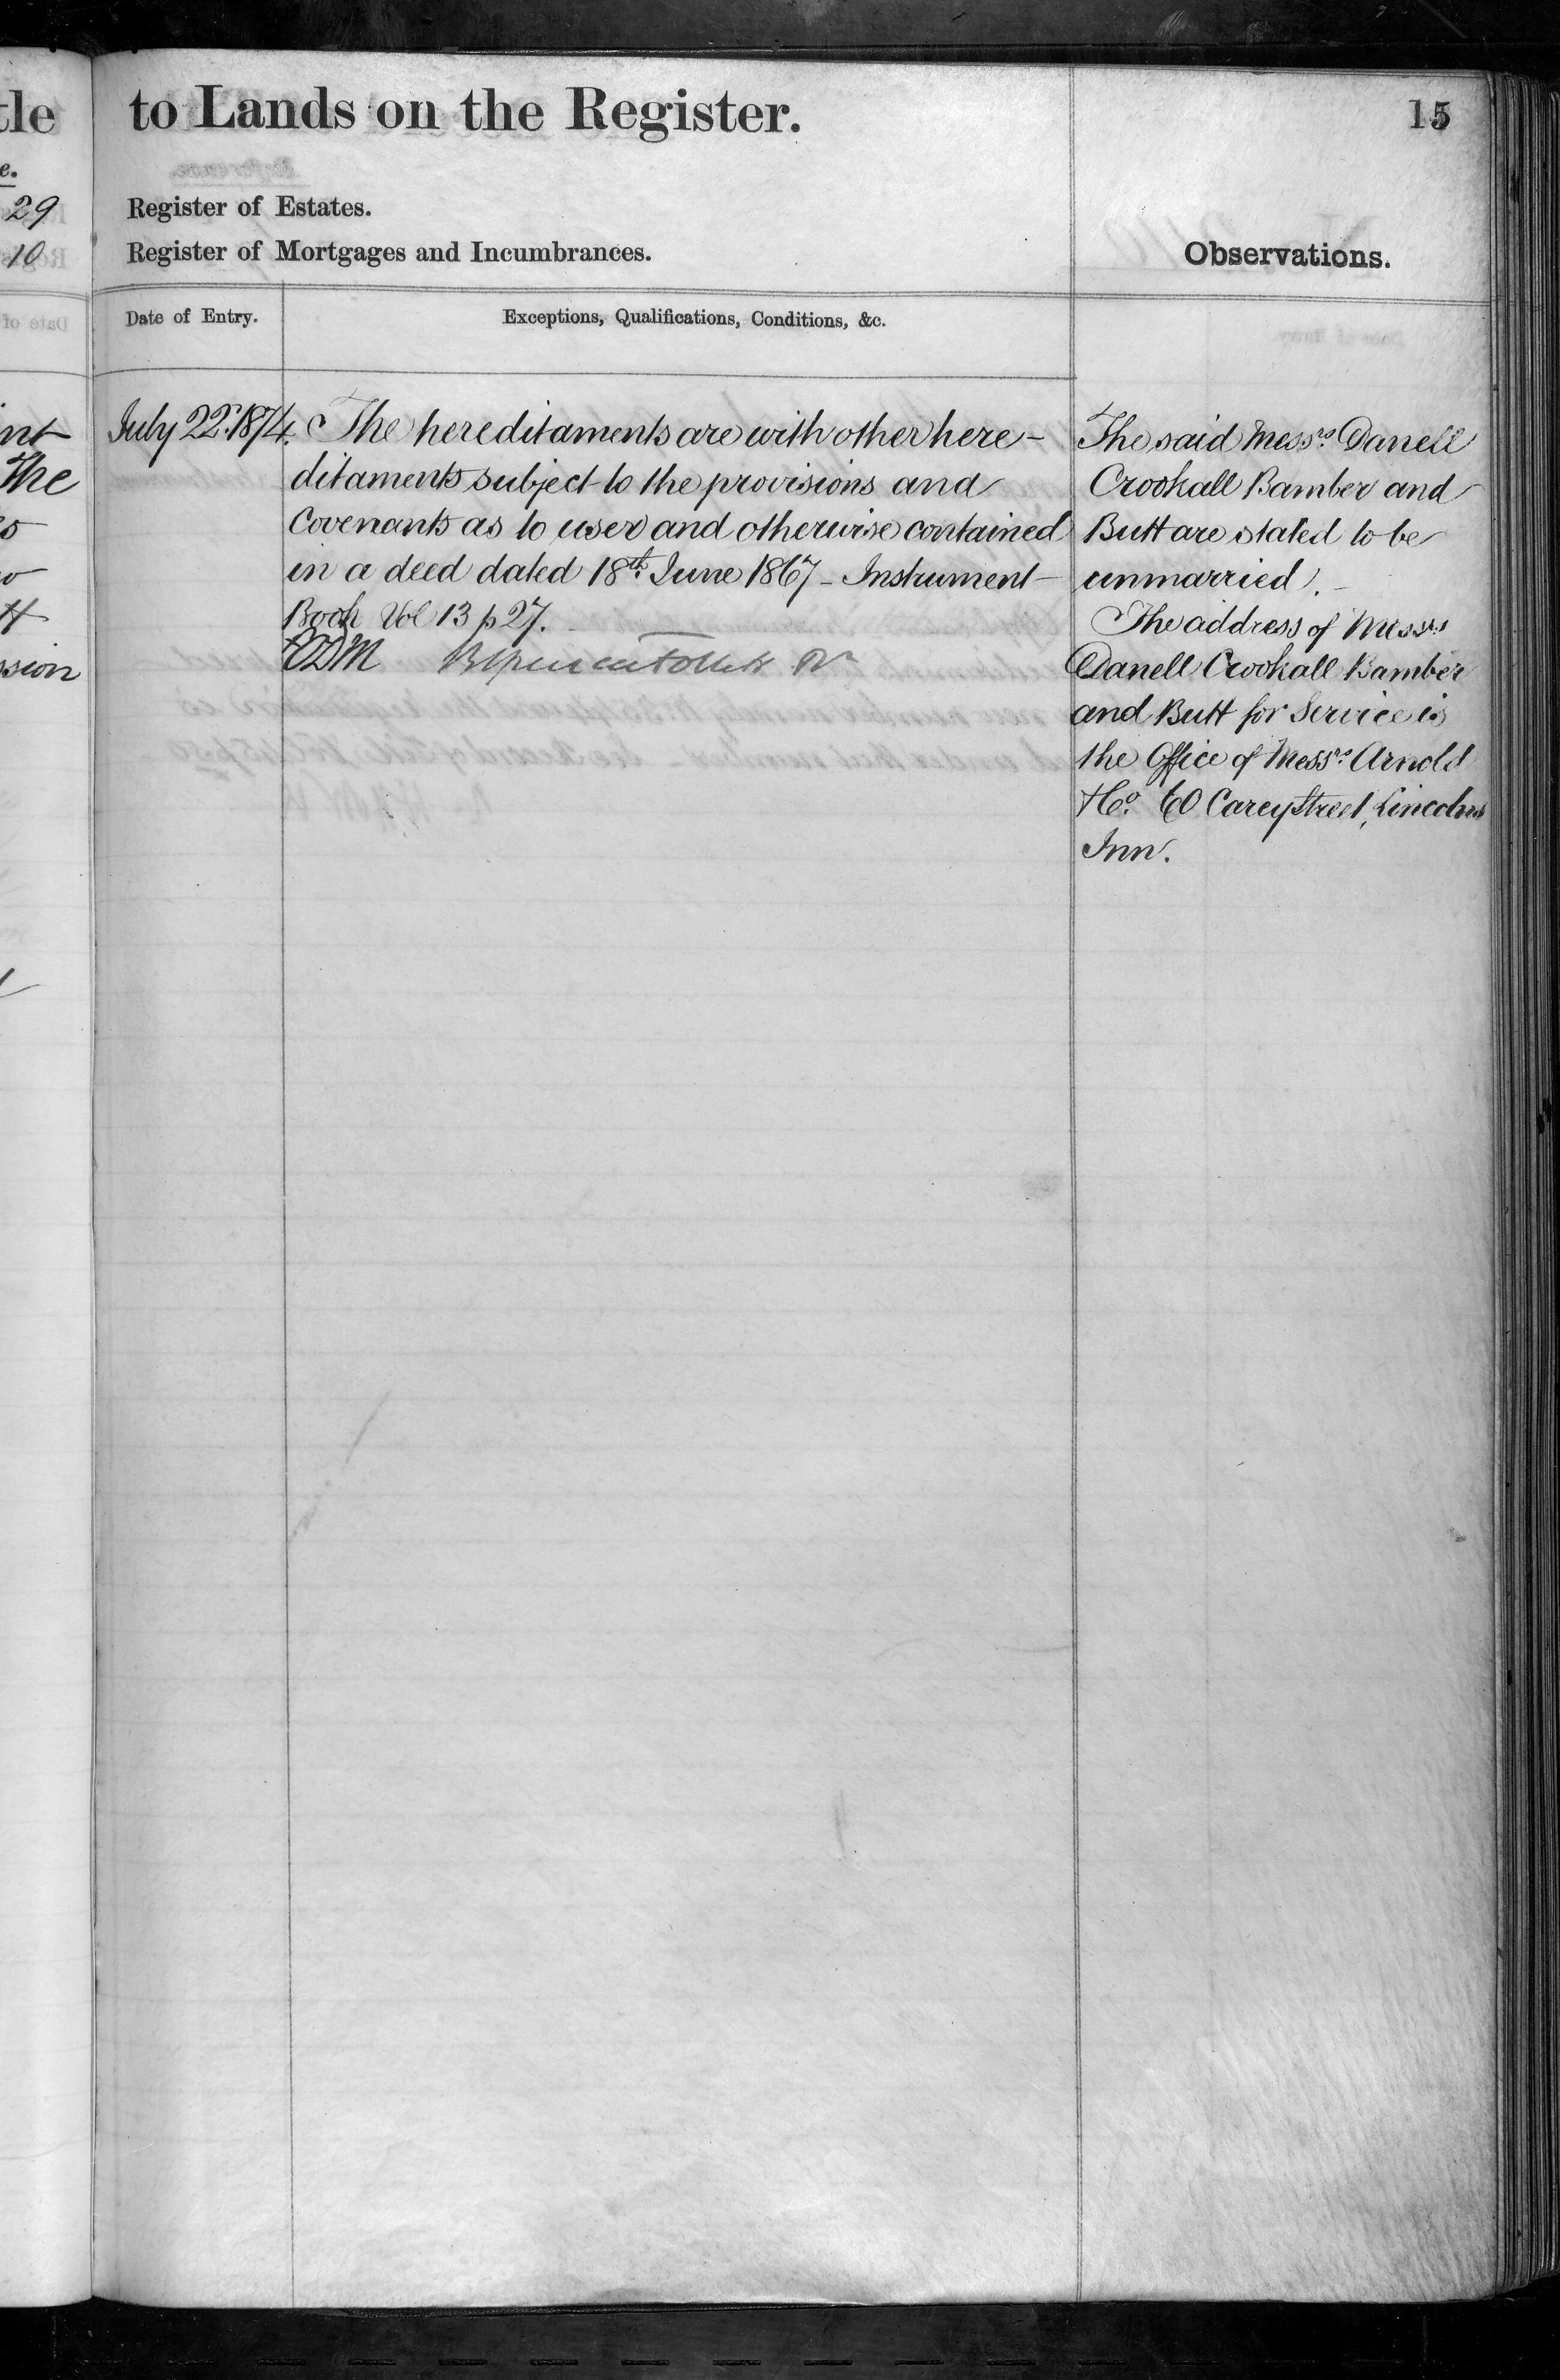 tle
to Lands on the Register.
15
e.
29
Register of Estates.
10
Register of Mortgages and Incumbrances.
Observations.
Date of Entry.
Exceptions, Qualifications, Conditions, &c.
July 22. 1874.
The hereditaments are with other here-
ditaments subject to the provisions and
Covenants as to user and otherwise contained
in a deed dated 18th. June 1867 - Instrument
Book Vol 13 p 27.
The said Messrs. Danell
Crookall Bamber and
Butt are stated to be
unmarried. -
The address of Messrs
Danell Crookall Bamber
and Butt for Service is
the Office of Messrs. Arnold
& Co. 60 Carey Street, Lincolns
Inn.
nt
The
ssion